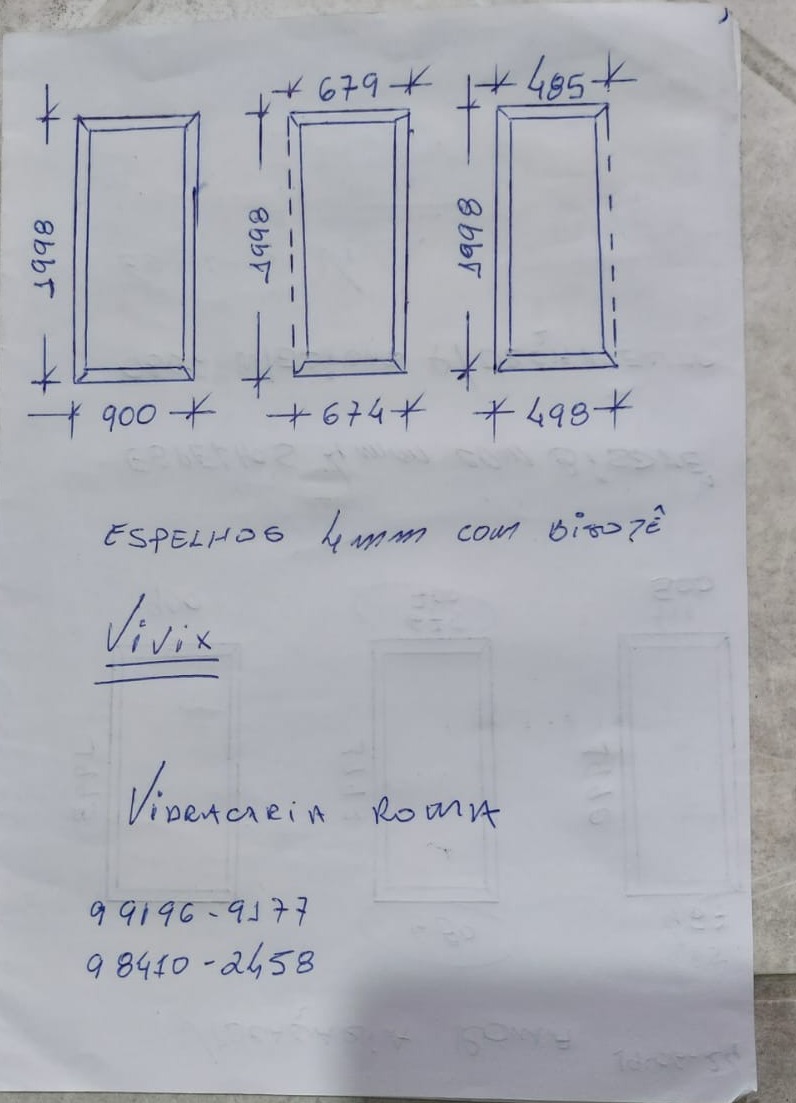 679
485
1998
1998
1998
900
674
498
ESPELHOS 4mm COM BISOTÊ
Vivix
VIDRACARIA ROMA
99196-9177
98410-2458